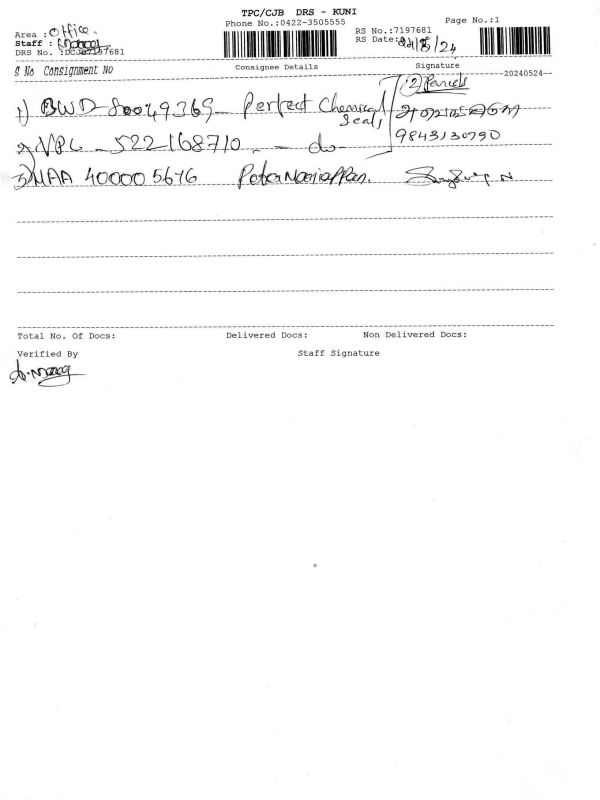 TPC/CJB DRS - KUNI
Phone No.:0422-3505555
Page No.:1
Area : Office.
RS No.:7197681
Staff : Manoj
RS Date: 24/5/24
DRS No. :DCJB7197681
S No Consignment No Consignee Details Signature
20240524
(2) Parcels
1) BWD-80049369- Perfect Chemical
Seals
9843130790
2) VPL - 522168710. - do-
3) MAA 400005676 Peter Mariappan.
Total No. Of Docs: Delivered Docs: Non Delivered Docs:
Verified By Staff Signature